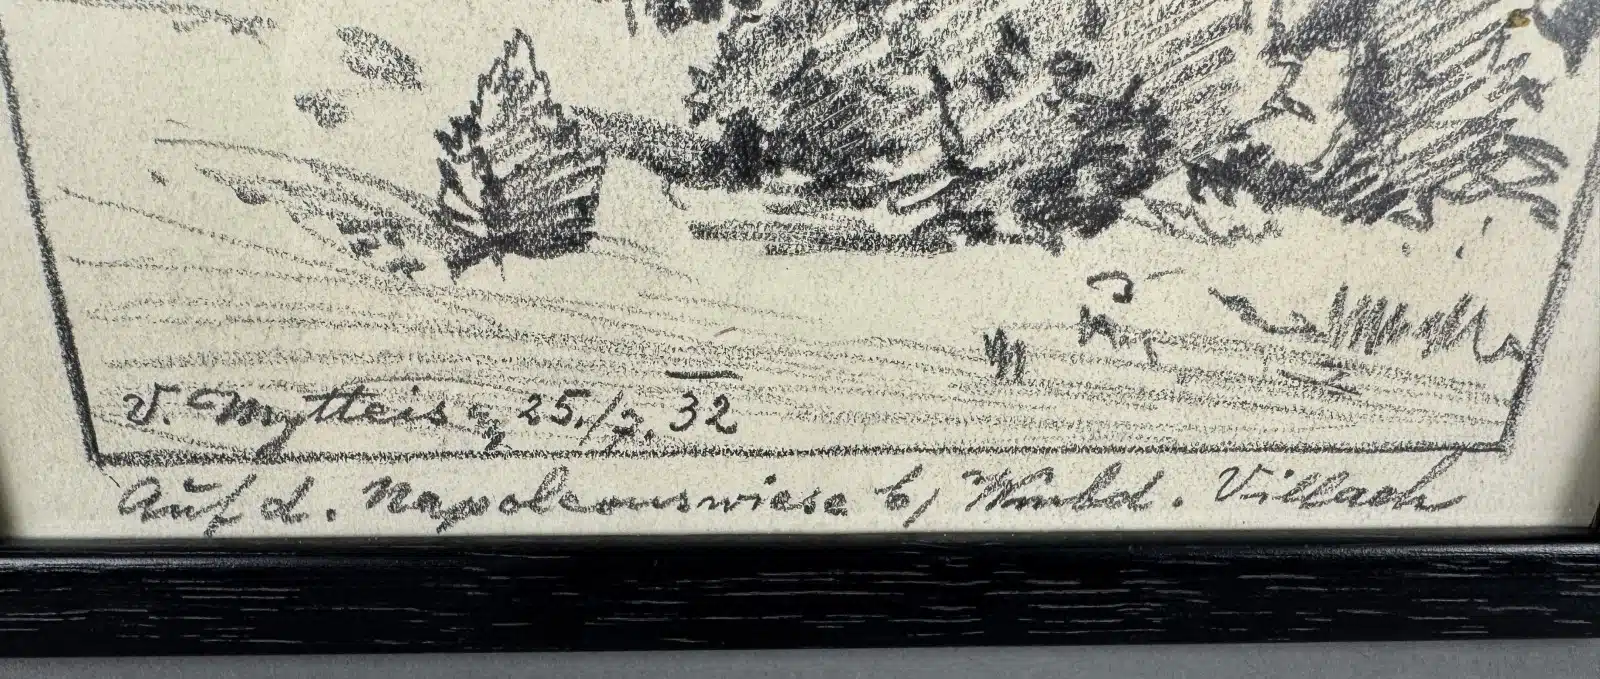 V. Mytteis 25./7. 32
Auf d. Napoleonswiese b/ Wmbd. Villach